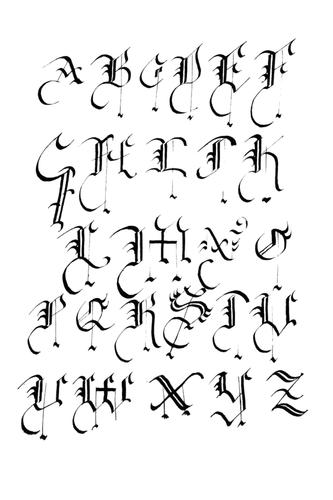 A B C D E F
G H I J K
L M N O
P Q R S T U
V W X Y Z